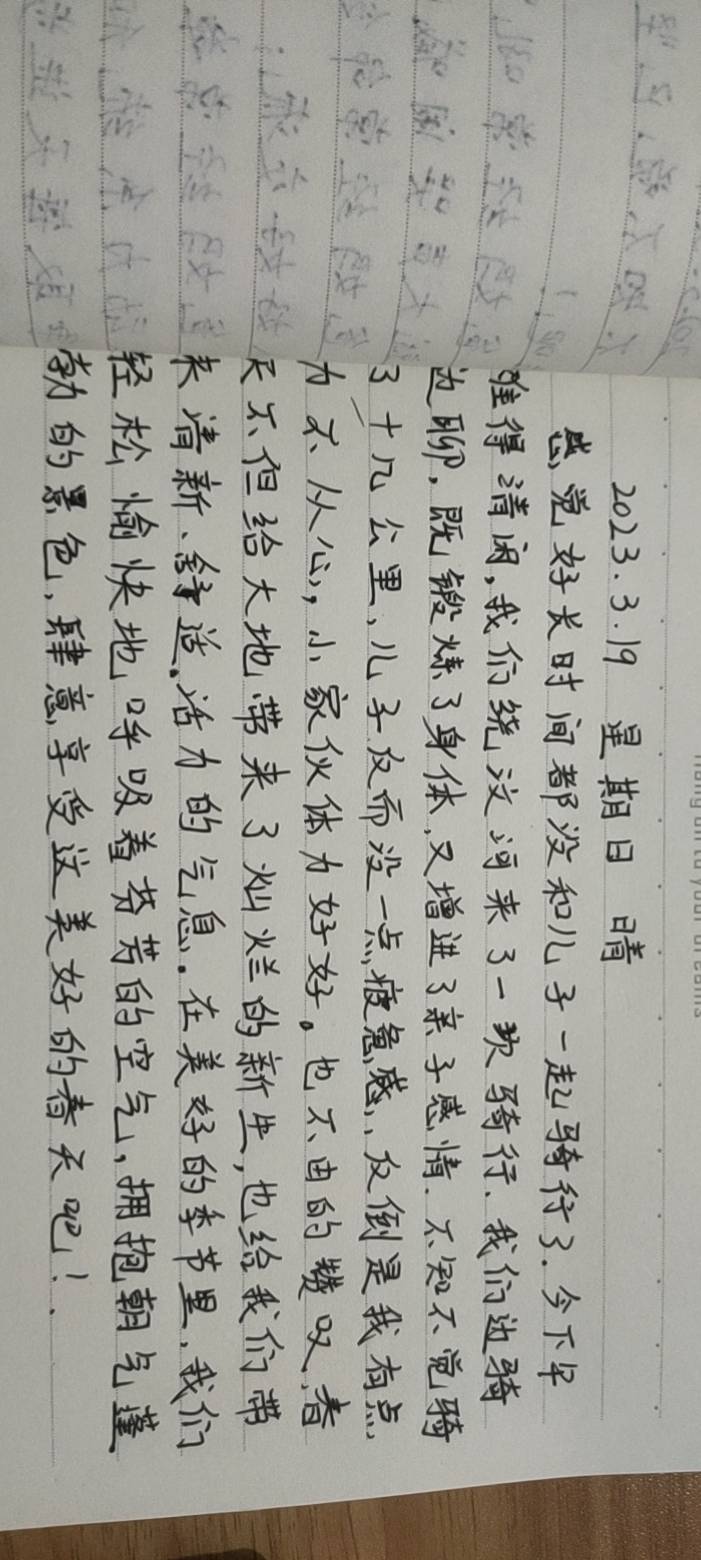 2023.3.19 星期日 晴
感觉好长时间都没和儿子一起骑行了.今下午
难得清闲,我们绕汶河来了一次骑行、我们边骑
边聊,既锻炼了身体,又增进了亲子感情.不知不觉骑
了十几公里,儿子反而没一点疲惫感,反倒是我有点
力不从心,小家伙体力好好。也不由的赞叹,春
天不但给大地带来了灿烂的新生,也给我们带
来清新、舒适.活力的气息.在美好的季节里,我们
轻松愉快地呼吸着芬芳的空气,拥抱朝气蓬
勃的景色,肆意享受这美好的春天吧!